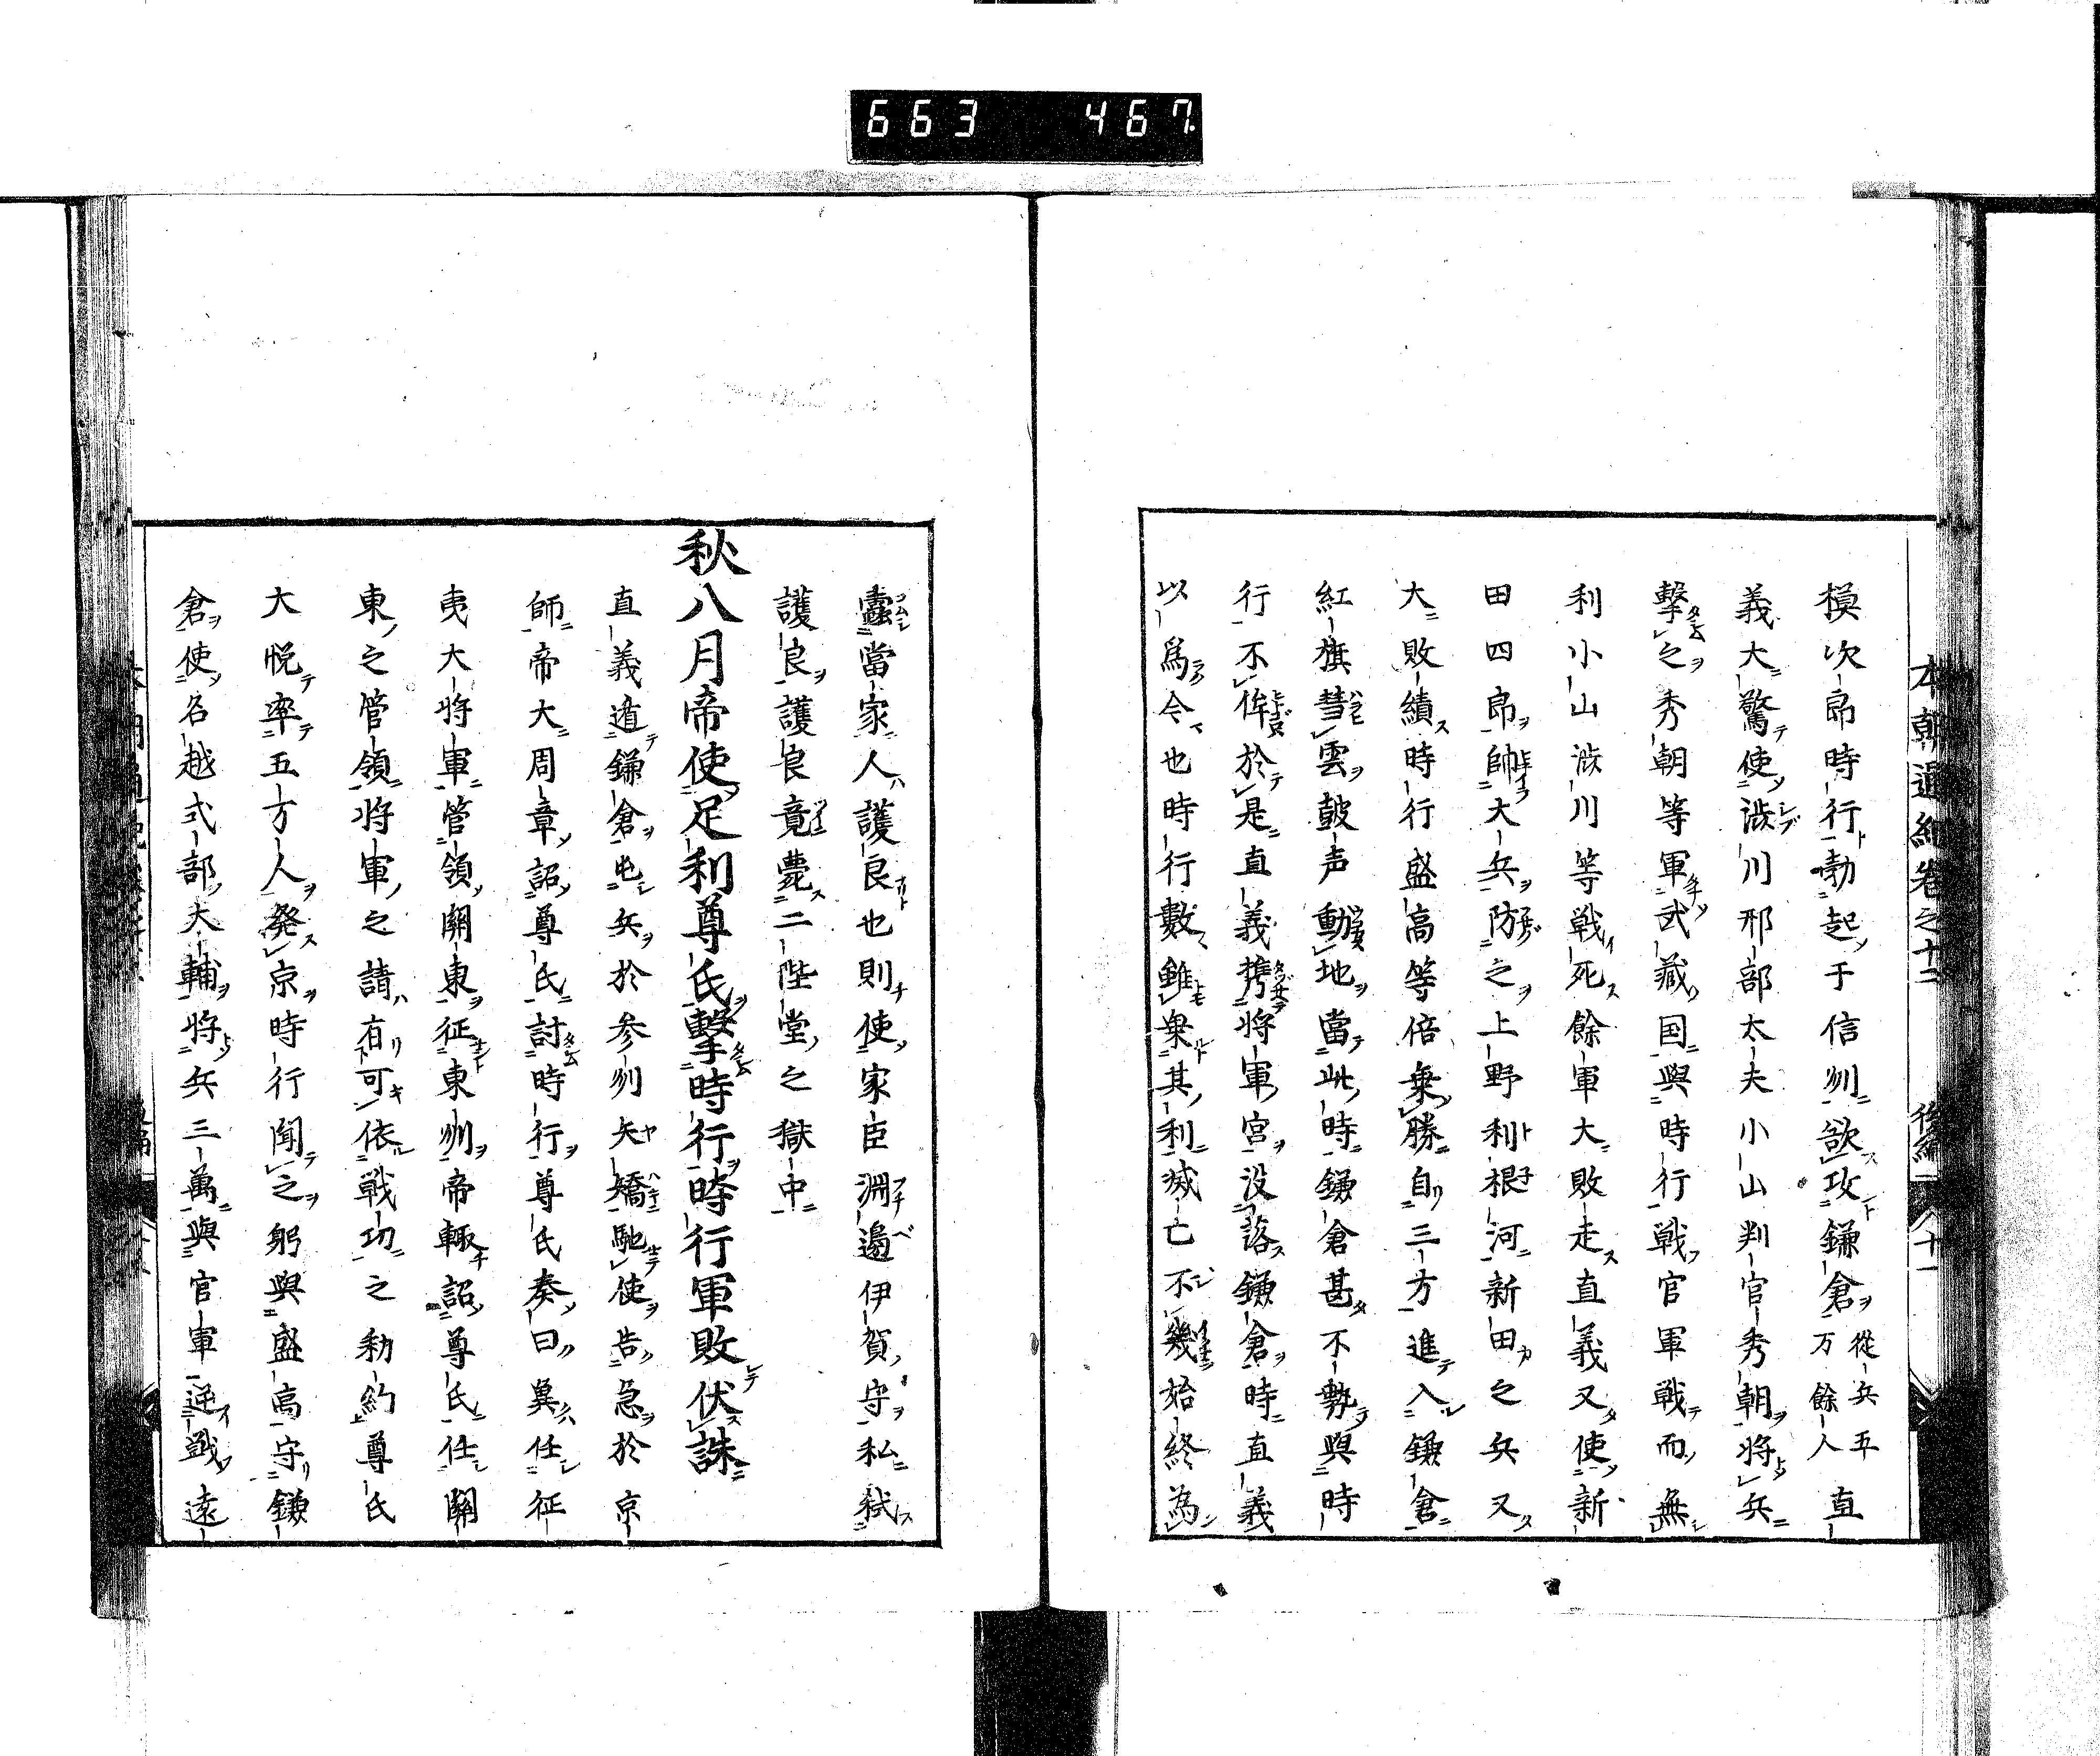 663 467
本朝通紀卷之十二 後編 八十一
模次郎時行勃起于信州欲攻鎌倉從兵五万餘人直
義大驚使澁川邢部太夫小山判官秀朝將兵
擊之秀朝等軍武藏国與時行戰官軍戰而無
利小山澁川等戰死餘軍大敗走直義又使新
田四郎帥大兵防之上野利根河新田之兵又
大敗績時行盛高等倍乗勝自三方進入鎌倉
紅旗彗雲皷声動地當此時鎌倉甚不勢與時
行不侔於是直義携將軍宮没落鎌倉時直義
以爲令也時行數雖衆其利滅亡不幾始終為
蠹當家人護良也則使家臣淵邉伊賀守私弑
護良護良竟薨二階堂之獄中
秋八月帝使足利尊氏擊時行時行軍敗伏誅
直義遁鎌倉屯兵於参州矢矯馳使告急於京
師帝大周章詔尊氏討時行尊氏奏曰冀任征
夷大將軍管領關東征東州帝輙詔尊氏任關
東之管領將軍之請有可依戰功之勅約尊氏
大悦率五方人発京時行聞之躬與盛高守鎌
倉使名越式部大輔將兵三萬與官軍逆戰遠